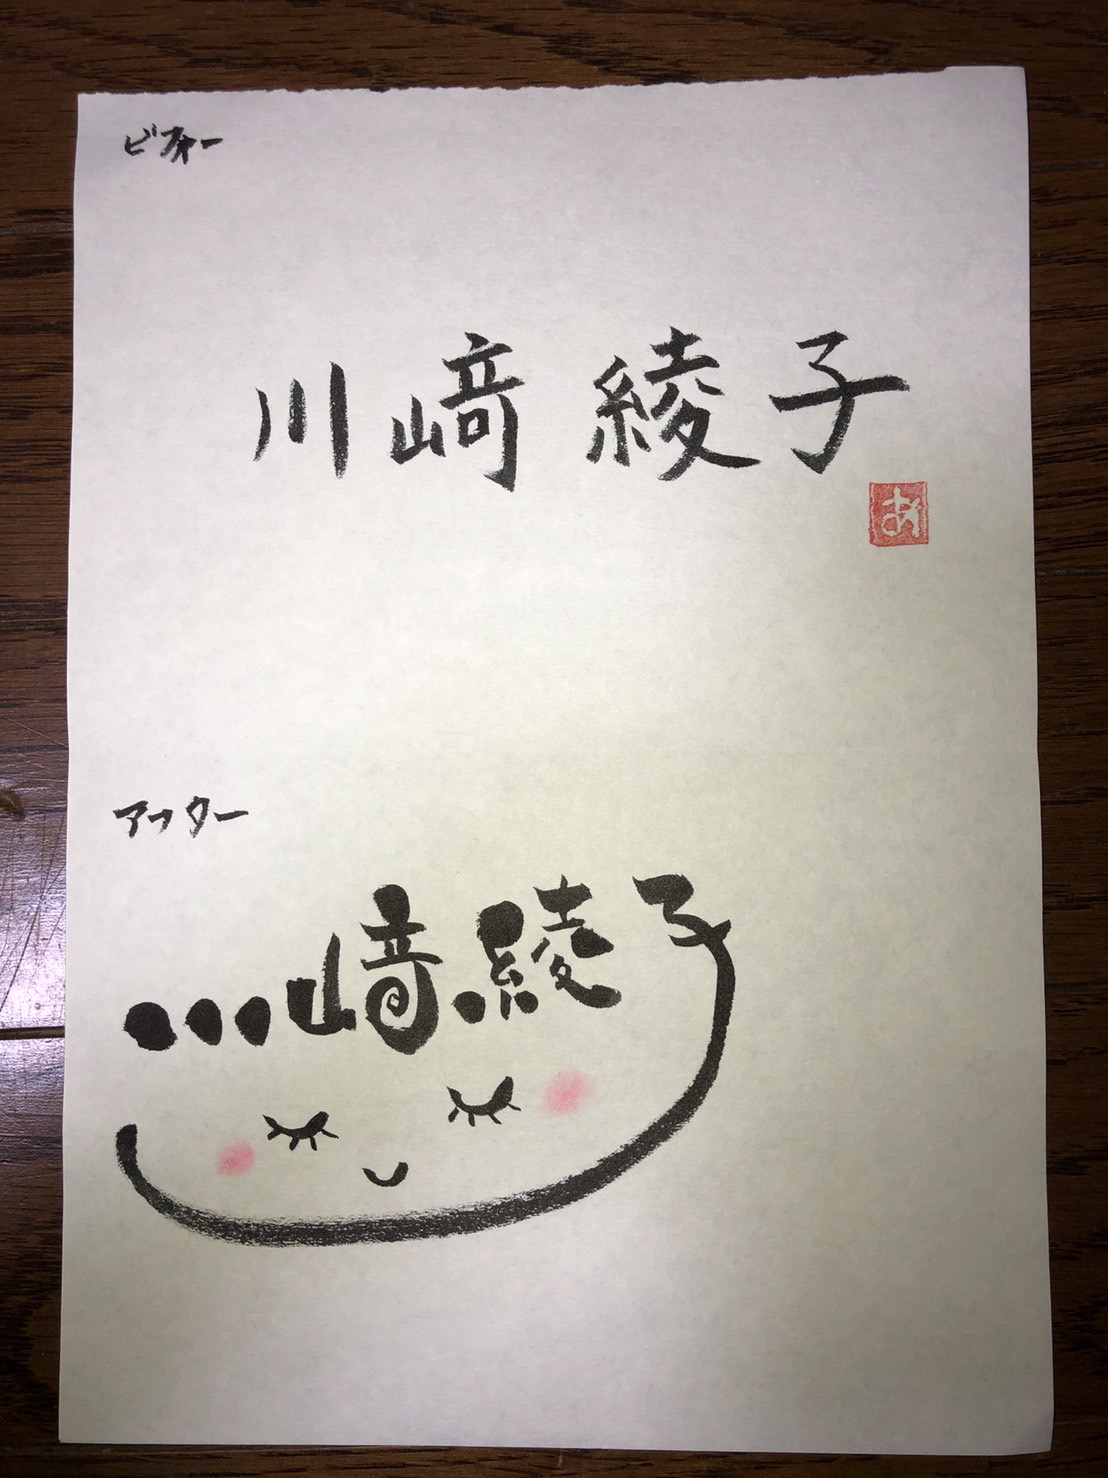 ビフォー
川﨑 綾子
あ
アフター
川﨑綾子